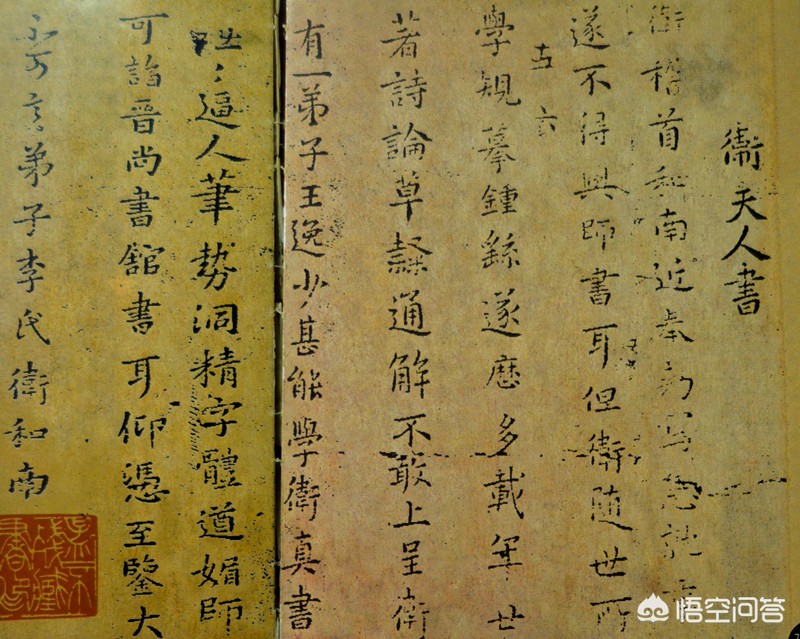 衛夫人書
衛稽首和南近奉勑寫急就
遂不得與師書耳但衛隨世所
學規摹鍾繇遂歷多載年廿
著詩論草隸通解不敢上呈衛
有一弟子王逸少甚能學衛真書
咄咄逼人筆勢洞精字體遒媚師
可詣晉尚書館書耳仰憑至鑒大
不可言弟子李氏衛和南
悟空问答